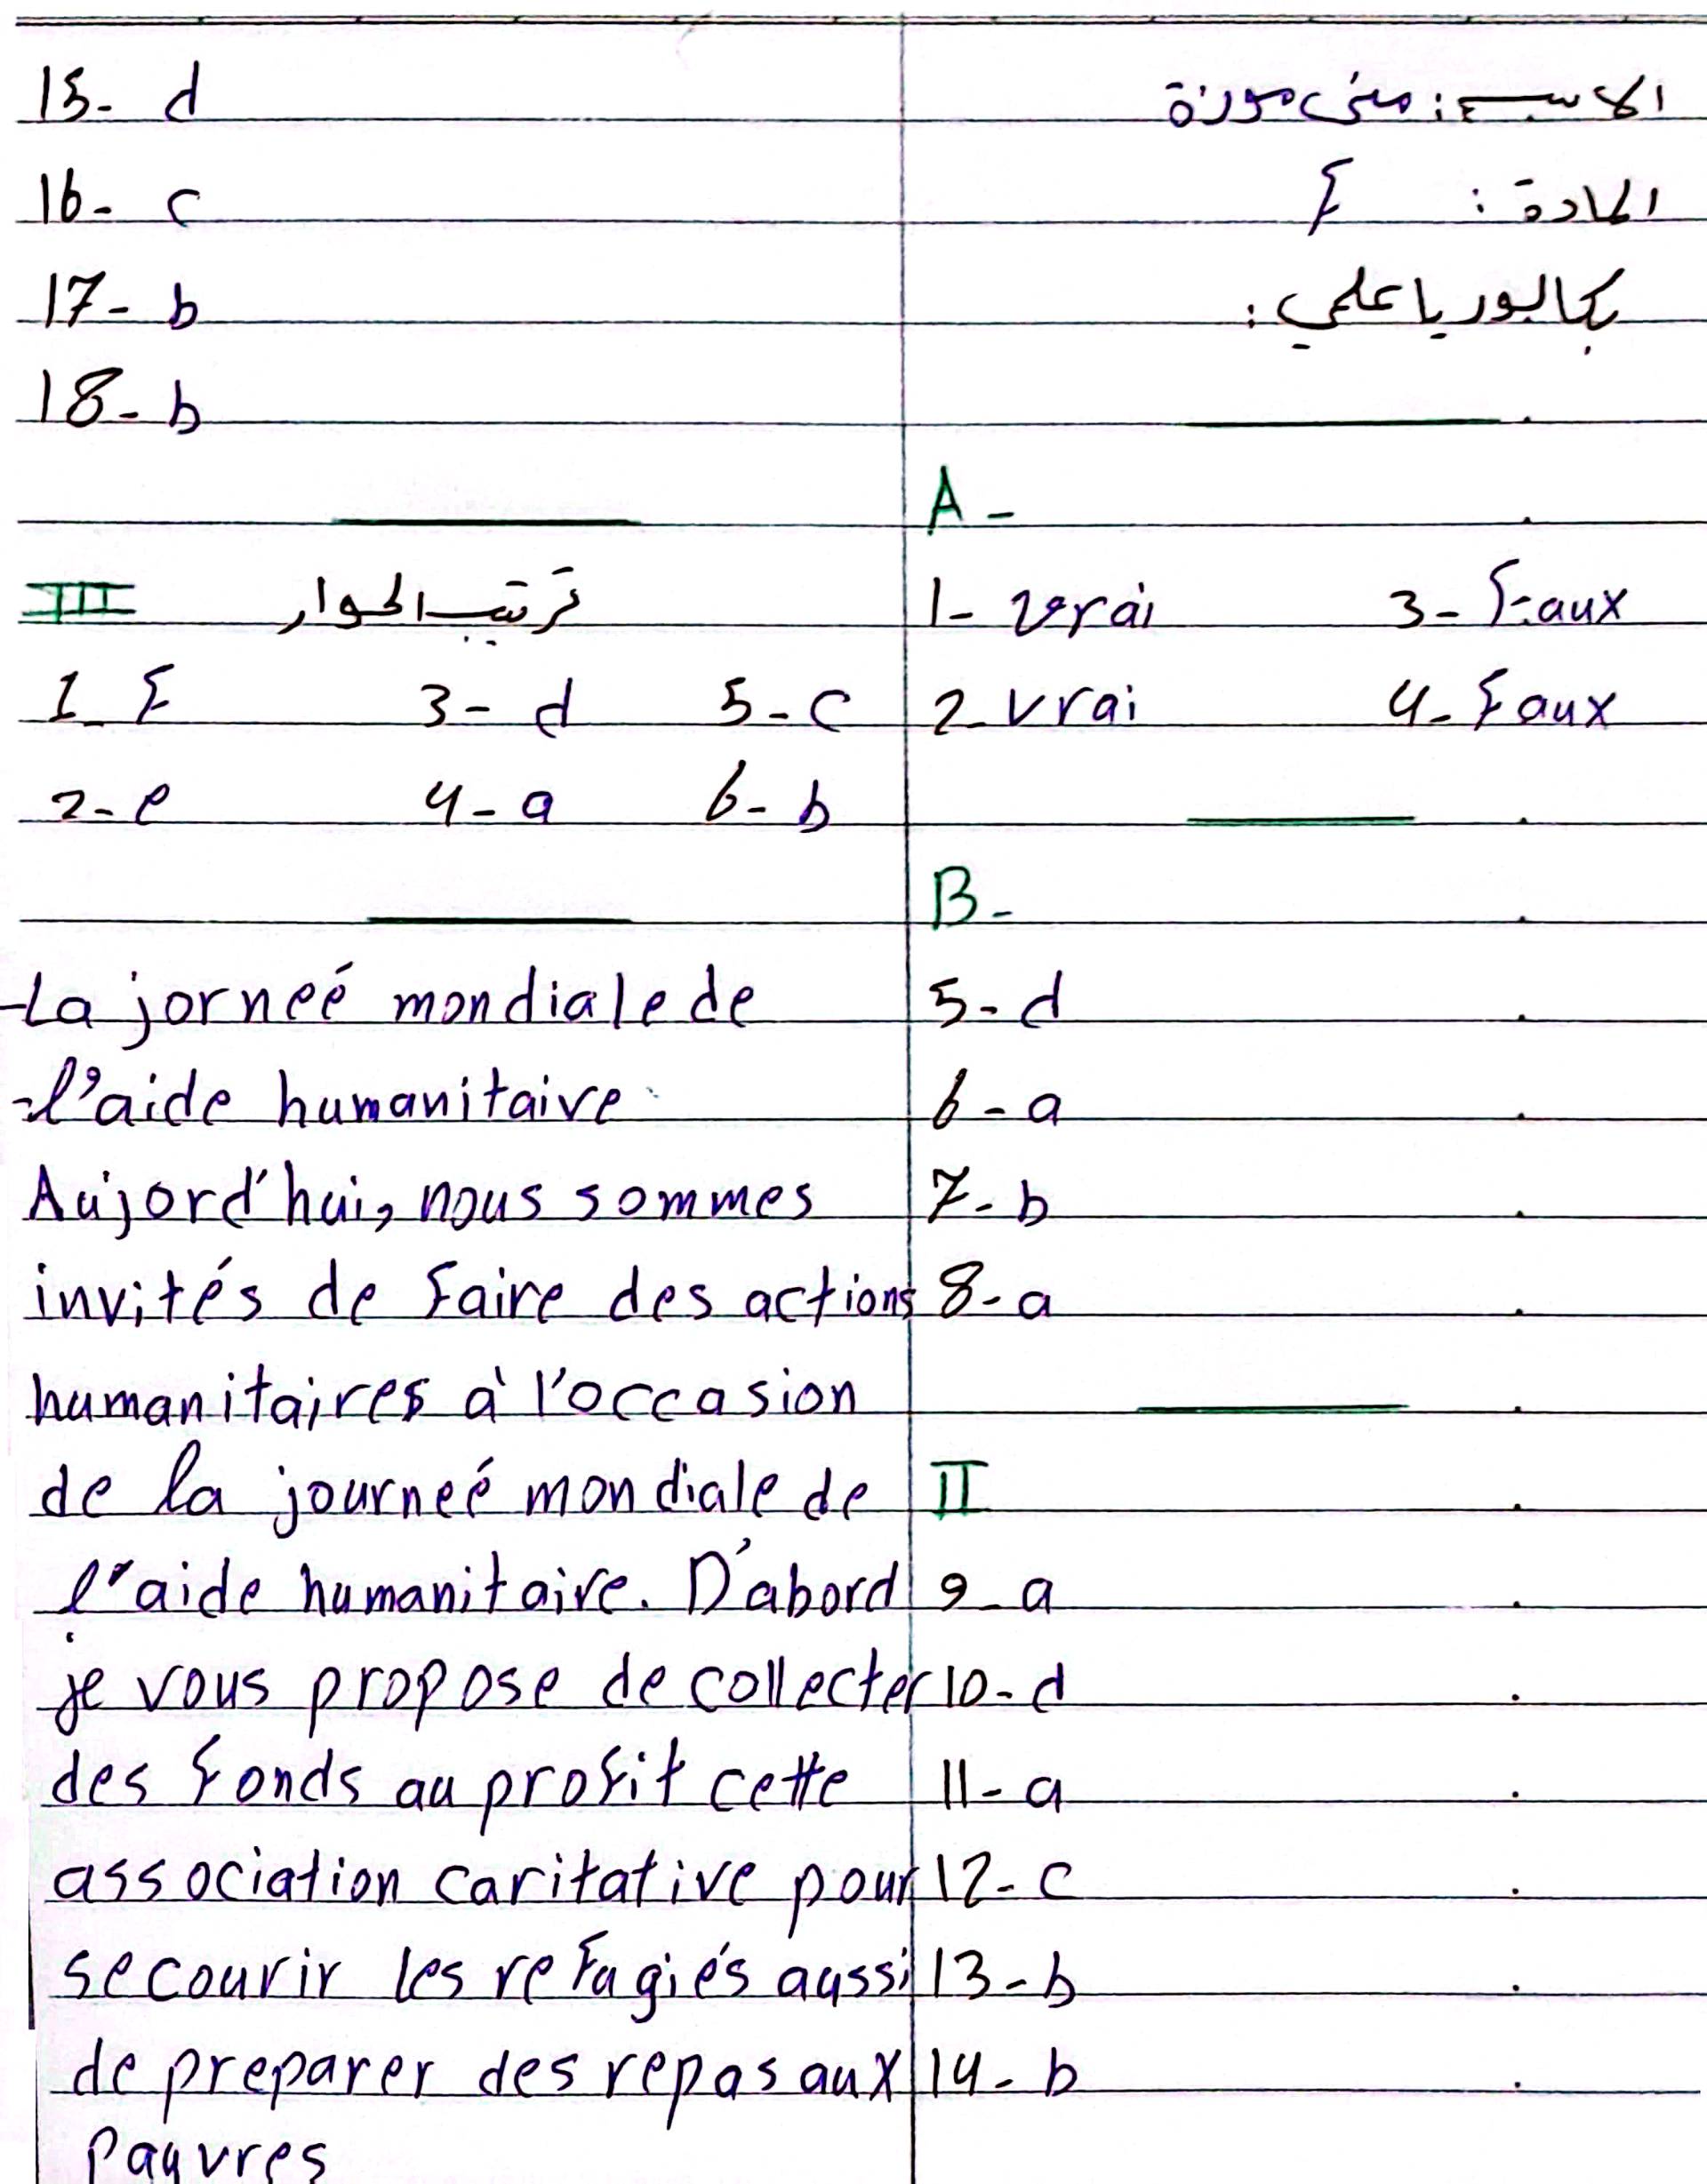 الاسم: منى موزة
المادة: f
بكالوريا علمي:
A -
1- vrai 3- Faux
2- vrai 4- Faux
B -
5- d
6- a
7- b
8- a
II
9- a
10- d
11- a
12- c
13- b
14- b
15- d
16- c
17- b
18- b
III ترتيب الحوار
1- f 3- d 5- c
2- e 4- a 6- b
-La jorneé mondiale de
-l'aide humanitaire
Aujord'hui, nous sommes
invités de faire des actions
humanitaires à l'occasion
de la journeé mondiale de
l'aide humanitaire. D'abord
je vous propose de collecter
des fonds au profit cette
association caritative pour
secourir les refugiés aussi
de preparer des repas aux
pauvres